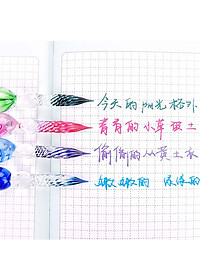 今天的阳光格外
青青的小草破土
偷偷的从黄土
嫩嫩的 绿绿的